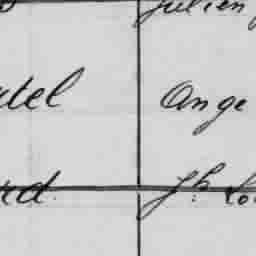 Julien
tel Ange
rd. Jh. Lo